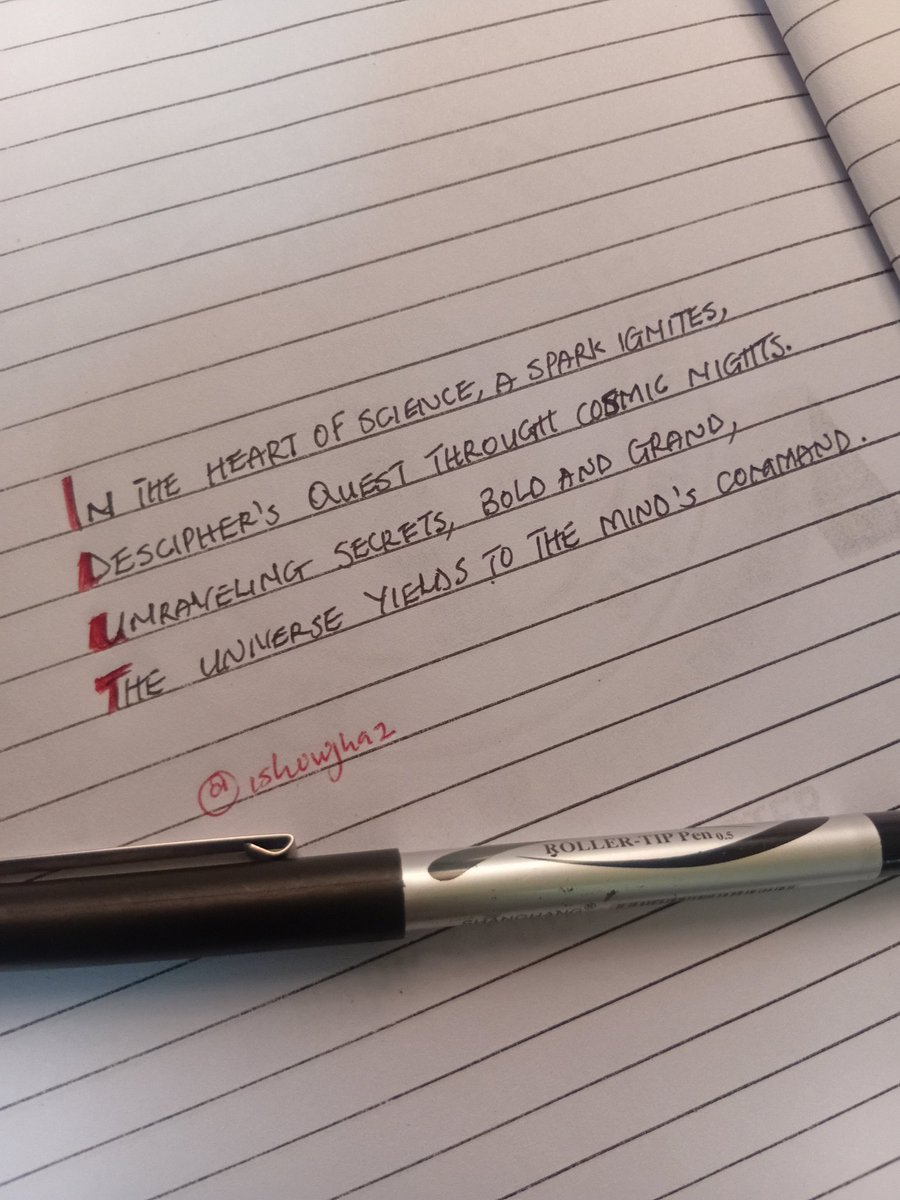 IN THE HEART OF SCIENCE, A SPARK IGNITES,
DESCIPHER'S QUEST THROUGH COSMIC NIGHTS.
UNRAVELING SECRETS, BOLD AND GRAND,
THE UNIVERSE YIELDS TO THE MIND'S COMMAND.
@ishowgha2
ROLLER-TIP Pen 0.5